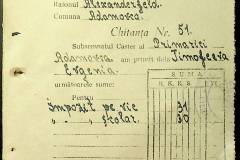 Raionul Alexanderfeld.
Comuna Adamovca
Chitanța Nr. 51.
Subsemnatul Casier al Primăriei
Adamovca am primit dela Timofeeva
Evgenia
următoarele sume:
SUMA
Pentru
Impozit pe vie 31
" " școlar. 30